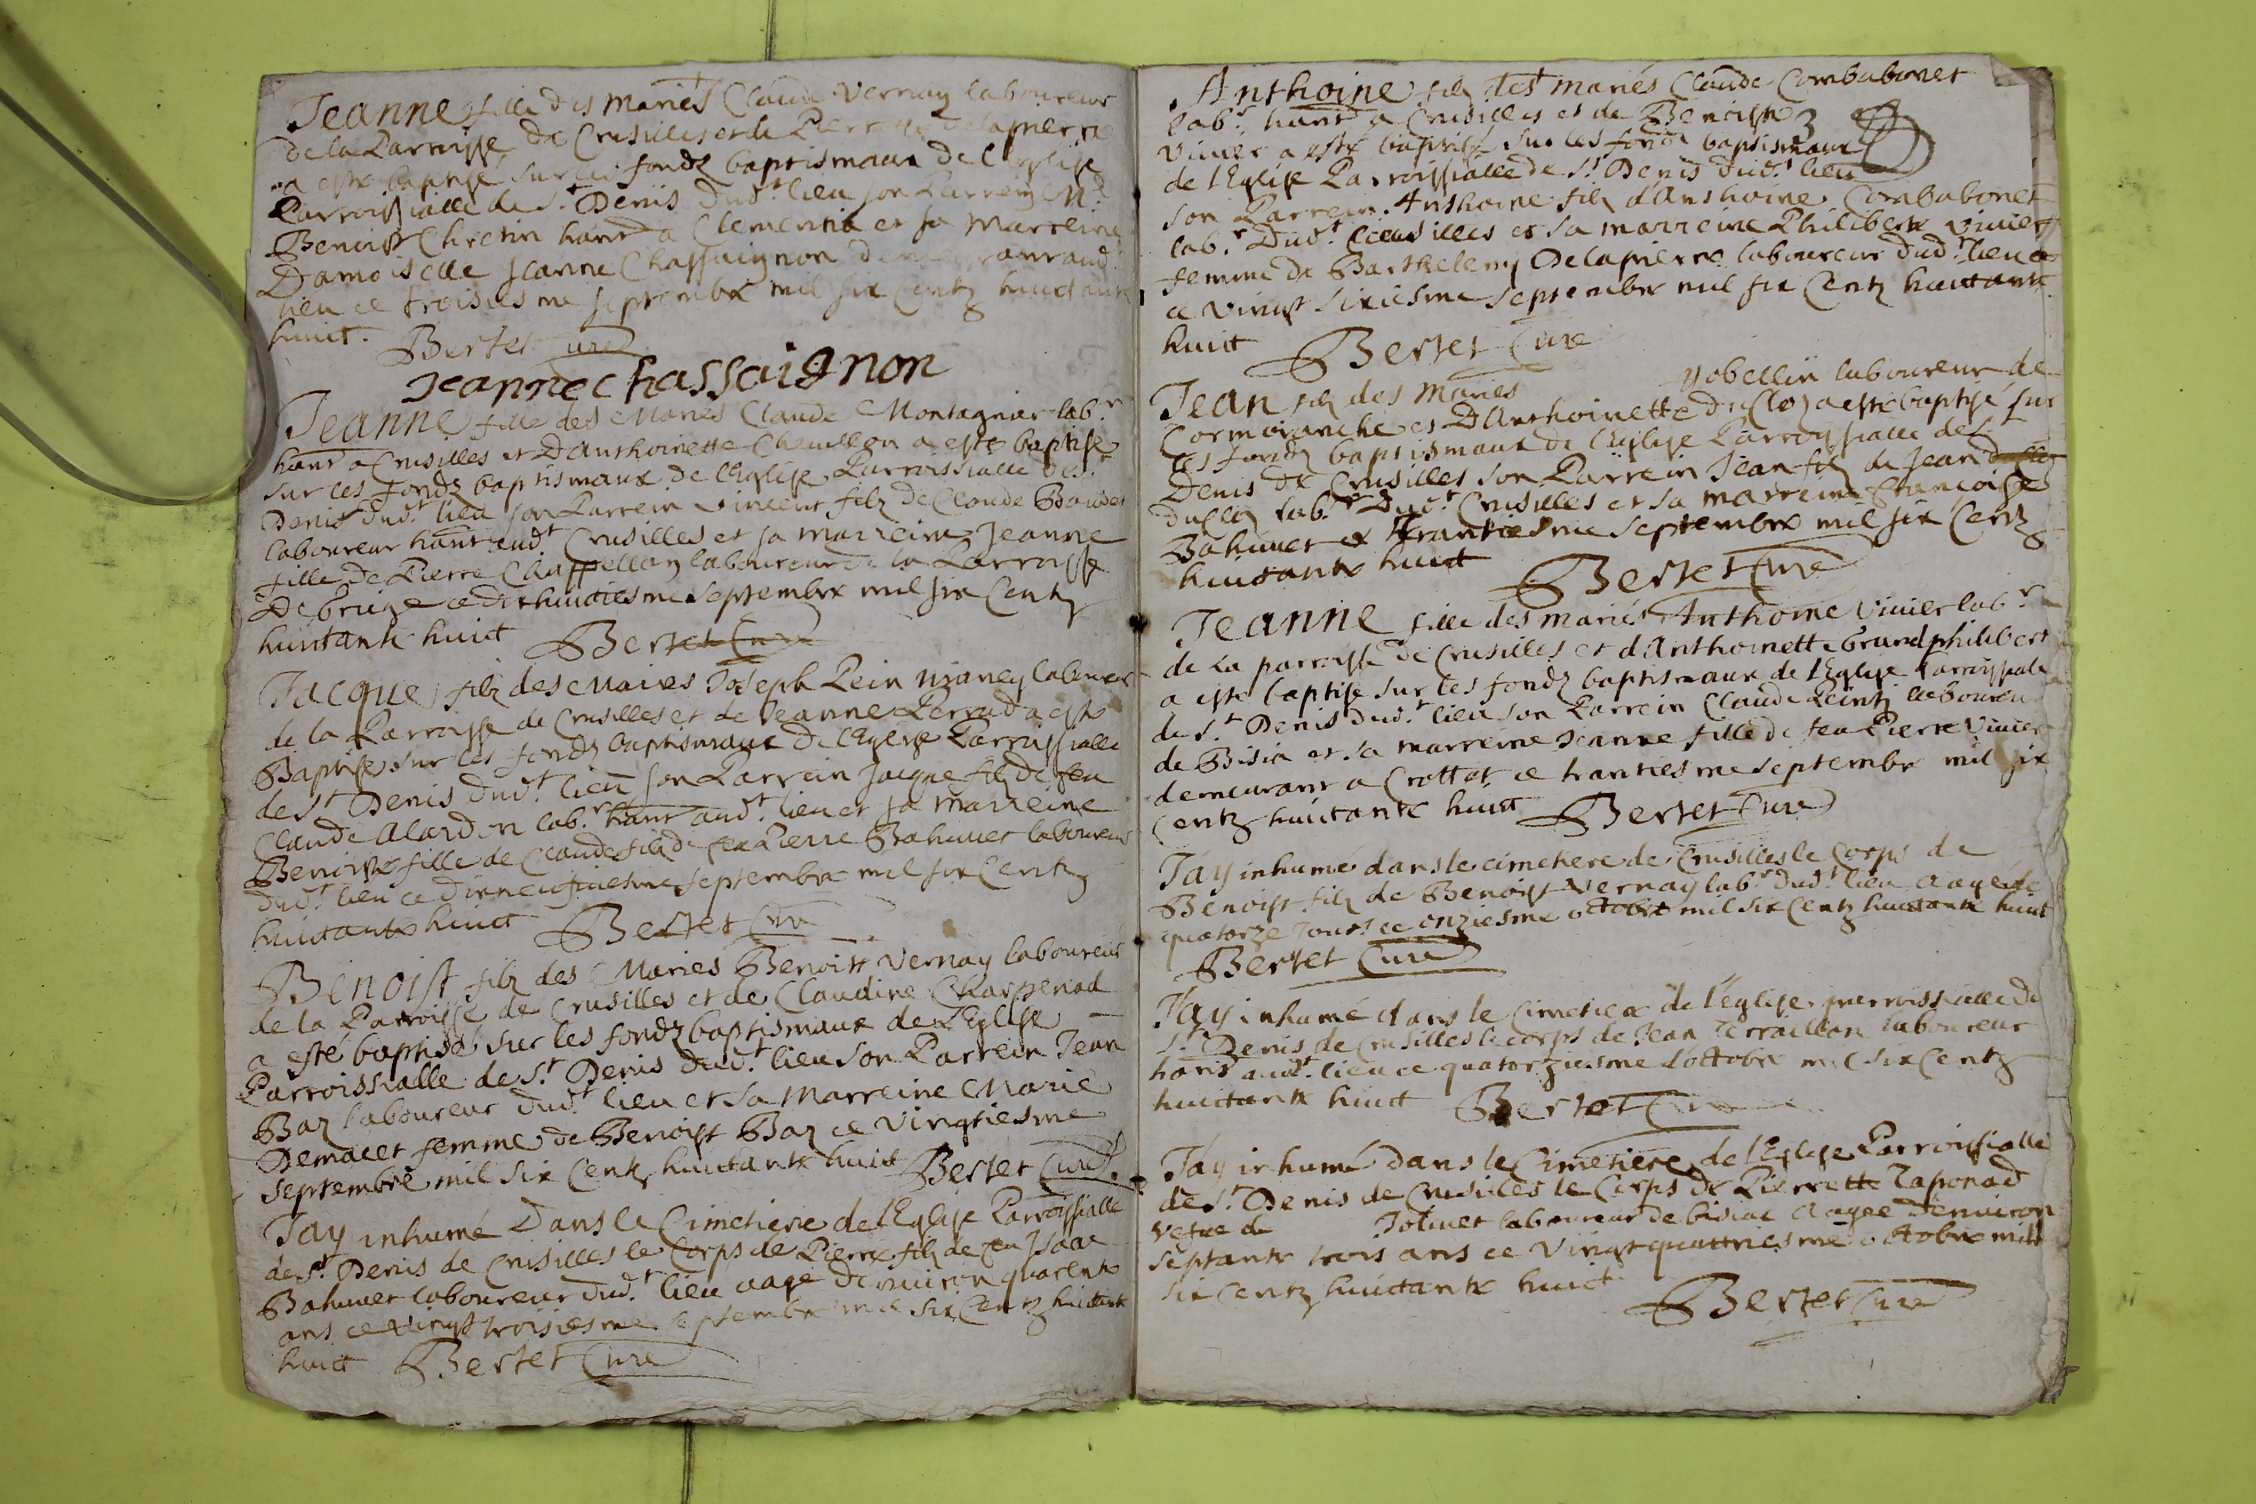 Jeanne fille des mariés Claude Vernay laboureur
de la Parroisse de Crusilles et de Pierrette Delapierre
a esté baptisé sur les fondz baptismaux de l'Eglise
Parroissialle de St. Deniis dudt. lieu son Parrein Mr.
Benoist Chretin hant a Clementia et sa Marreine
Damoiselle Jeanne Chassaignon
lieu ce troisiesme septembre mil six Centz huictante
huict. Bertet Curé
Jeanne Chassaignon
Jeanne fille des Mariés Claude Montagnier labr.
hant a Crusilles et D'anthoinette Chevillon a esté baptisé
sur les fondz baptismaux de l'Eglise Parroissialle de St.
Denis dudt. lieu son Parrein vincent filz de Claude Boudet
laboureur hant audt. Crusilles et sa marreine Jeanne
fille de Pierre Chappellan laboureur de la Parroisse
De brieze ce dixhuictiesme septembre mil six Centz
huictante huict Bertet Curé
Jacque filz des Maries Joseph Pein laboureur
de la Parroisse de Crusilles et de Jeanne Perrad a esté
Baptisé sur les fondz baptismaux de l'Eglise Parroissialle
de St. Denis dudt. lieu son Parrein Jacque filz de feu
Claude Alardon labr. hant audt. lieu et sa marreine
Benoiste fille de Claude filz de feu Pierre Bahuuet laboureur
dudt. lieu ce dixneufviesme septembre mil six Centz
huictante huict Bertet Curé
Benoist filz des Maries Benoist Vernay laboureur
de la Parroisse de Crusilles et de Claudine Charpenad
a esté baptisé sur les fondz baptismaux de l'Eglise
Parroissialle de St. Denis dudt. lieu son Parrein Jean
Baz laboureur dudt. lieu et sa Marreine Marie
Demacet femme de Benoist Baz ce vingtiesme
septembre mil six Centz huictante huict Bertet Curé
J'ay inhumé Dans le Cimetiere de l'Eglise Parroissialle
de St. Denis de Crusilles le Corps de Pierre filz de feu Isaac
Bahuuet laboureur dudt. lieu aagé d'environ quarente
ans ce vingt troisiesme septembre mil six Centz huictante
huict Bertet Curé
Anthoine filz des mariés Claude Combabonet
labr. hant a Crusilles et de Benoiste
Vivier a esté baptisé sur les fondz baptismaux
de l'Eglise Parroissialle de St. Denis dudt. lieu
son Parrein Anthoine filz d'Anthoine Combabonet
labr. Dudt. Crusilles et sa marreine Philiberte Vivier
femme de Barthelemy Delapierre laboureur dudt. lieu
ce vingt sixiesme septembre mil six Centz huictante
huict Bertet Curé
Jean filz des Mariés Gobellin laboureur de
Cormoranche et D'Anthoinette Duclos a esté baptisé sur
les fondz baptismaux de l'Eglise Parroissialle de St.
Denis de Crusilles son Parrein Jean filz de Jean
duclos labr. Dudt. Crusilles et sa marreine francoise
Bahuuet ce trantiesme septembre mil six Centz
huictante huict Bertet Curé
Jeanne fille des mariés Anthoine Vivier labr.
de la parroisse de Crusilles et d'Anthoinette Grandphilibert
a esté baptisé sur les fondz baptismaux de l'Eglise Parroissialle
de St. Denis dudt. lieu son Parrein Claude Peintz laboureur
de Bisia et sa marreine Jeanne fille de feu Pierre Vivier
demeurant a Crottet ce trantiesme septembre mil six
Centz huictante huict Bertet Curé
J'ay inhumé dans le cimetiere de Crusilles le Corps de
Benoist filz de Benoist Vernay labr. dudt. lieu aagé de
quatorze jours ce onziesme octobre mil six Centz huictante huict
Bertet Curé
J'ay inhumé dans le Cimetiere de l'église parroissialle de
St. Denis de Crusilles le corps de Jean Terraillon laboureur
hant audt. lieu ce quatorziesme d'octobre mil six Centz
huictante huict Bertet Curé
J'ay inhumé dans le Cimetiere de l'Eglise Parroissialle
de St. Denis de Crusilles le Corps de Pierrette Taponad
vefue de Joliuet laboureur de bisiac aagée d'environ
septante trois ans ce Vingt quattriesme octobre mil
six Centz huictante huict
Bertet Curé